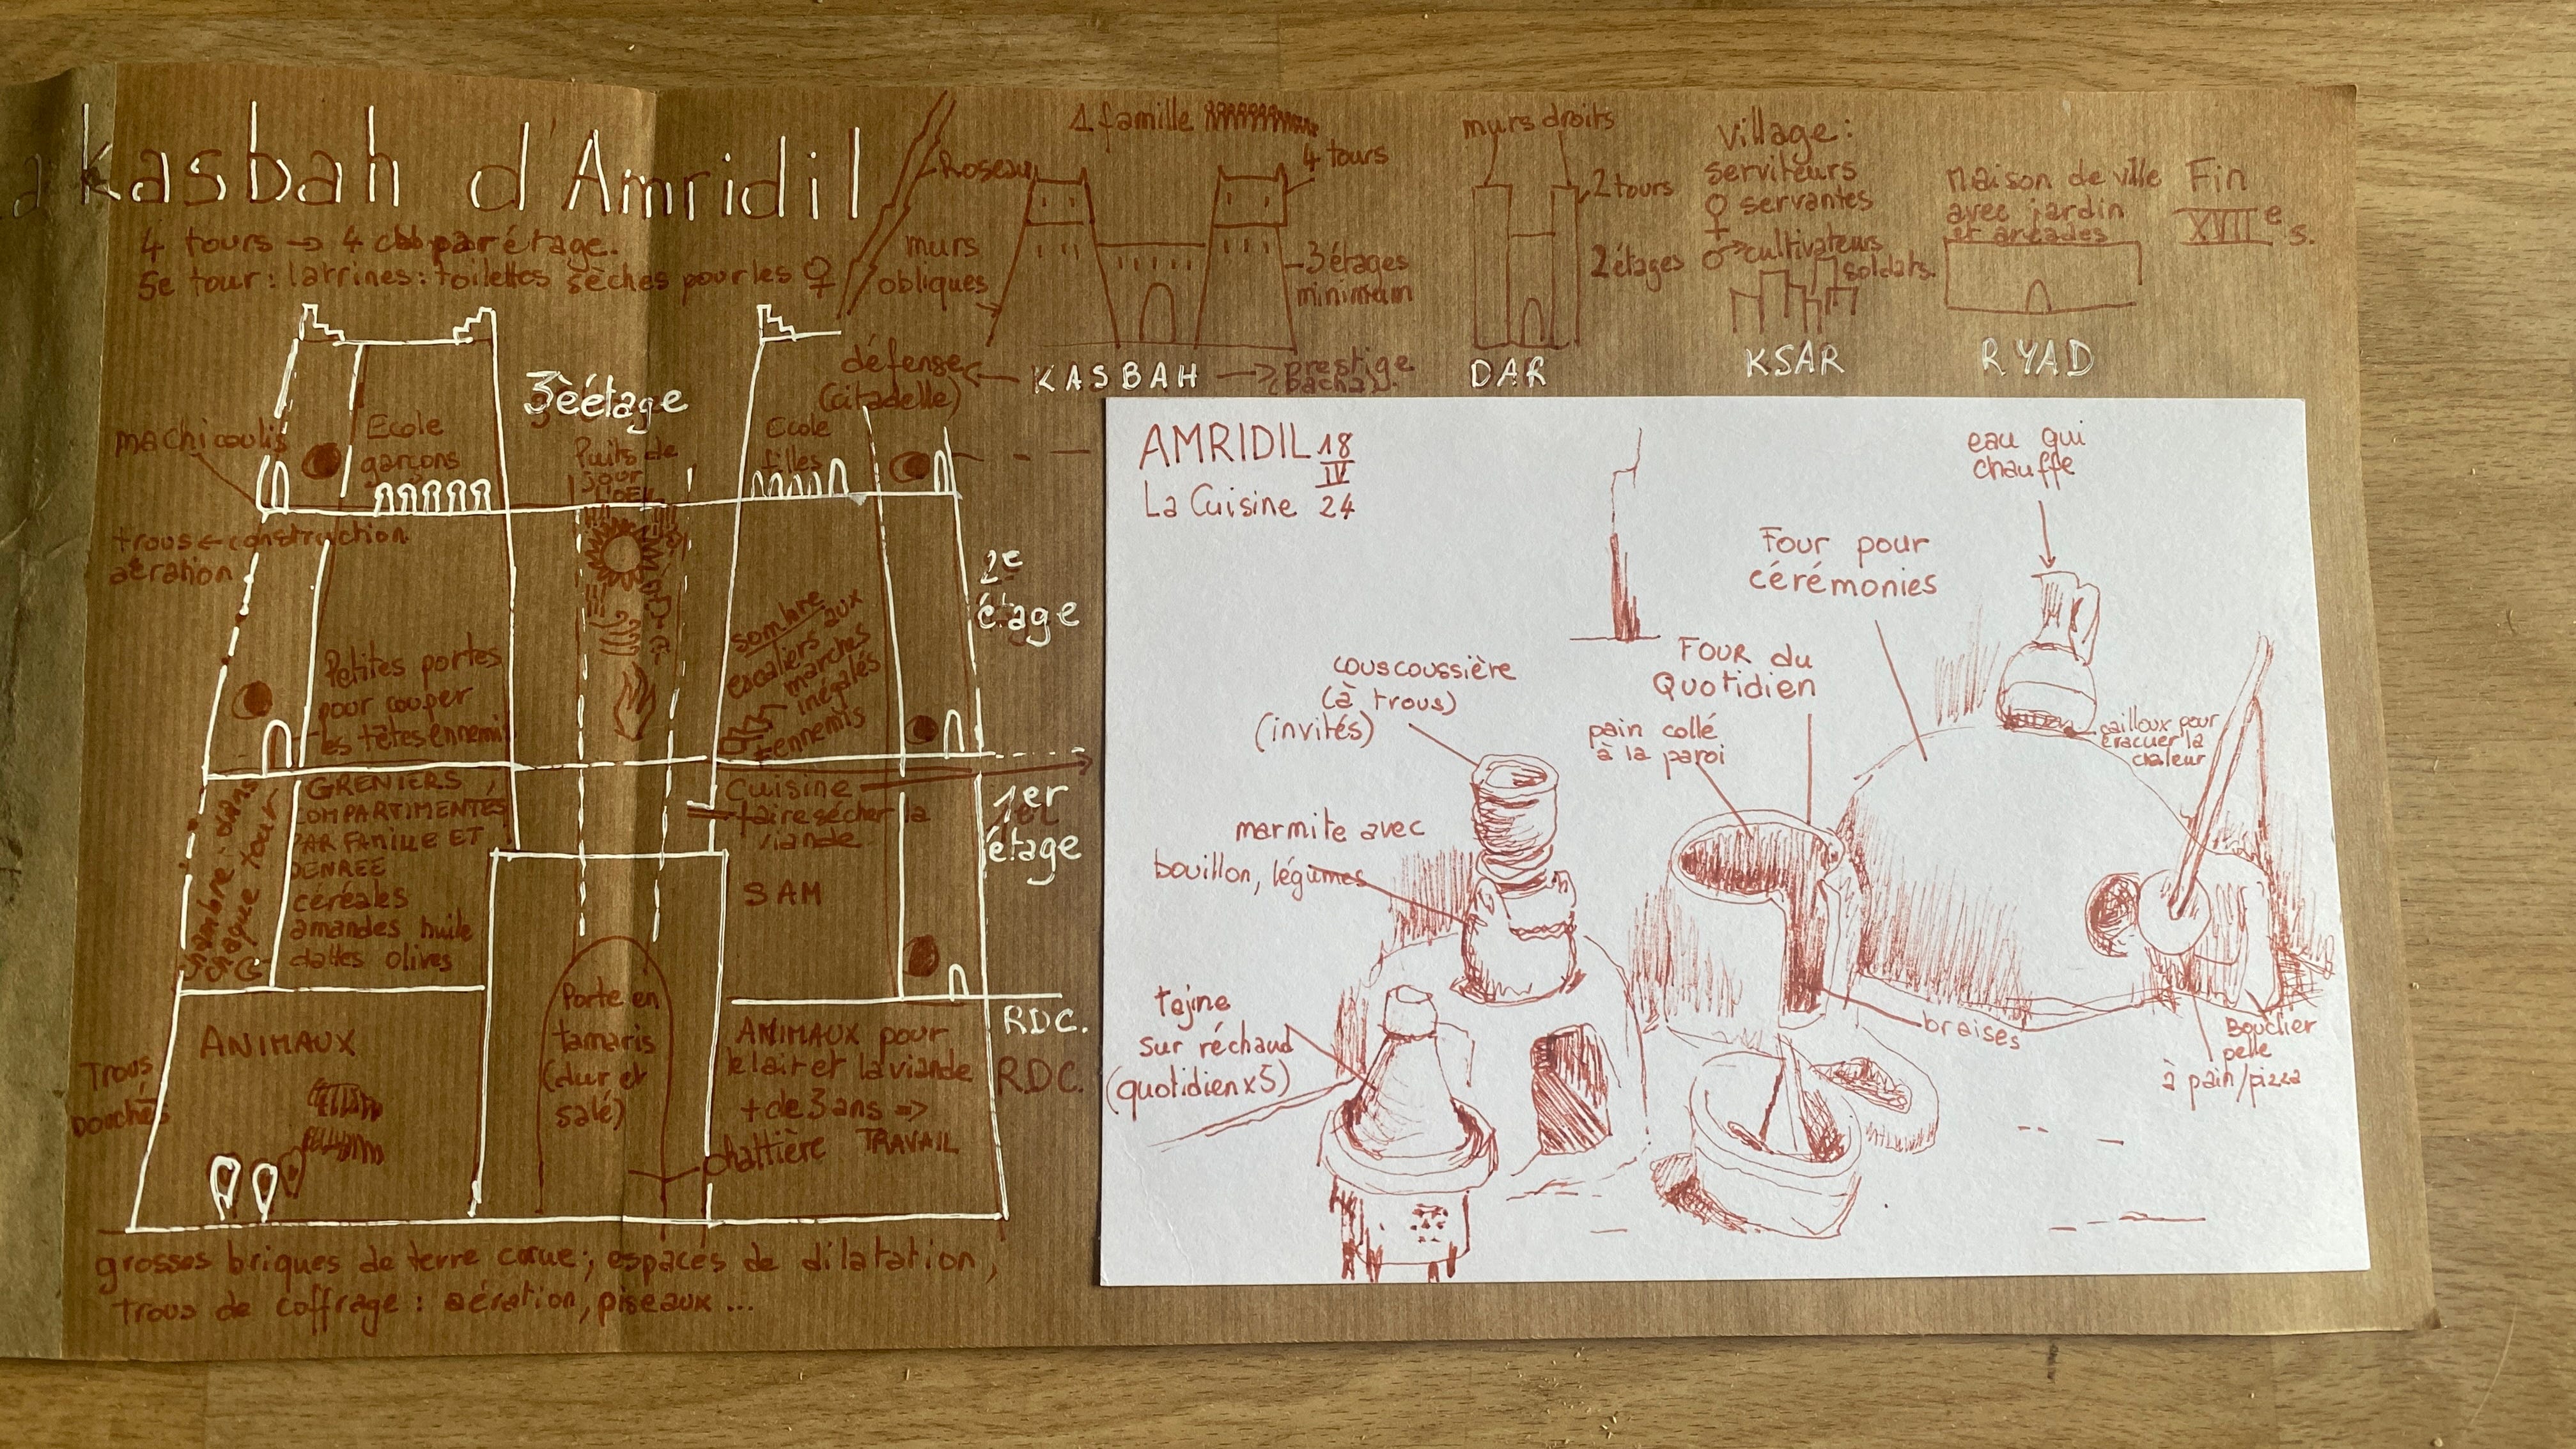 La Kasbah d'Amridil
4 tours → 4 chb par étage.
5e tour : latrines : toilettes sèches pour les ♀
Roseau
1 famille
4 tours
murs
obliques
3 étages
minimum
défense ← KASBAH → prestige
(citadelle)
(pacha)
murs droits
2 tours
2 étages
DAR
village :
serviteurs
♀ servantes
♂ → cultivateurs
soldats.
KSAR
Maison de ville
avec jardin
et arcades
RYAD
Fin
XVIIe s.
3è étage
machicoulis
Ecole
garçons
Puits de
jour
Ecole
filles
trous ← construction
aération
2e
étage
Petites portes
pour couper
les têtes ennemi
sombre
escaliers aux
marches
inégales
≠ ennemis
GRENIERS
COMPARTIMENTÉS
PAR FAMILLE ET
DENREE
céréales
amandes huile
dattes olives
chambre : dans
chaque tour
Cuisine
faire sécher la
viande
SAM
1er
étage
ANIMAUX
Trous
bouchés
Porte en
tamaris
(dur et
salé)
ANIMAUX pour
le lait et la viande
+ de 3 ans ⇒
TRAVAIL
chattière
RDC.
R.D.C.
grosses briques de terre crue ; espaces de dilatation,
trous de coffrage : aération, oiseaux ...
AMRIDIL 18
IV
La Cuisine 24
eau qui
chauffe
Four pour
cérémonies
FOUR du
Quotidien
couscoussière
(à trous)
(invités)
pain collé
à la paroi
cailloux pour
évacuer la
chaleur
marmite avec
bouillon, légumes
tajine
sur réchaud
(quotidien x5)
braises
Bouclier
pelle
à pain/pizza